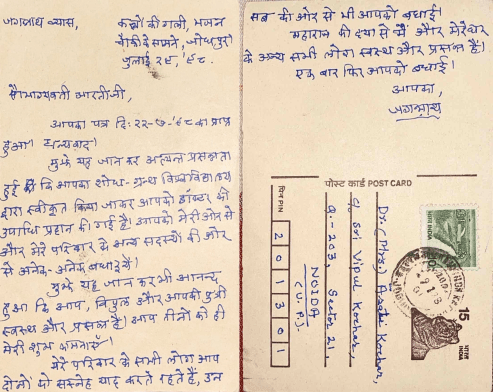 जगन्नाथ व्यास,
कल्लों की गली, भजन
चौकी के सामने, जोधपुर
जुलाई २९, '९८.
सौभाग्यवती आरतीजी,
आपका पत्र दि: २२-७-'९८ का प्राप्त
हुआ। धन्यवाद।
मुझे यह जान कर अत्यन्त प्रसन्नता
हुई कि आपका शोध-ग्रन्थ विश्वविद्यालय
द्वारा स्वीकृत किया जाकर आपको डॉक्टर की
उपाधि प्रदान की गई है। आपको मेरी ओर से
और मेरे परिवार के अन्य सदस्यों की ओर
से अनेक-अनेक बधाइयें।
मुझे यह जान कर भी आनन्द
हुआ कि आप, विपुल और आपकी पुत्री
स्वस्थ और प्रसन्न हैं। आप तीनों को ही
मेरी शुभ कामनाएँ।
मेरे परिवार के सभी लोग आप
दोनों को सस्नेह याद करते रहते हैं, उन
सब की ओर से भी आपको बधाई।
महाराज की दया से मैं और मेरे घर
के अन्य सभी लोग स्वस्थ और प्रसन्न हैं।
एक बार फिर आपको बधाई।
आपका,
जगन्नाथ
पोस्ट कार्ड POST CARD
Dr. (Mrs) Arati Kochar
C/o Sri Vipul Kochar,
Q-203, Sector 21,
NOIDA
(U.P.)
पिन PIN
201301
भारत INDIA
15